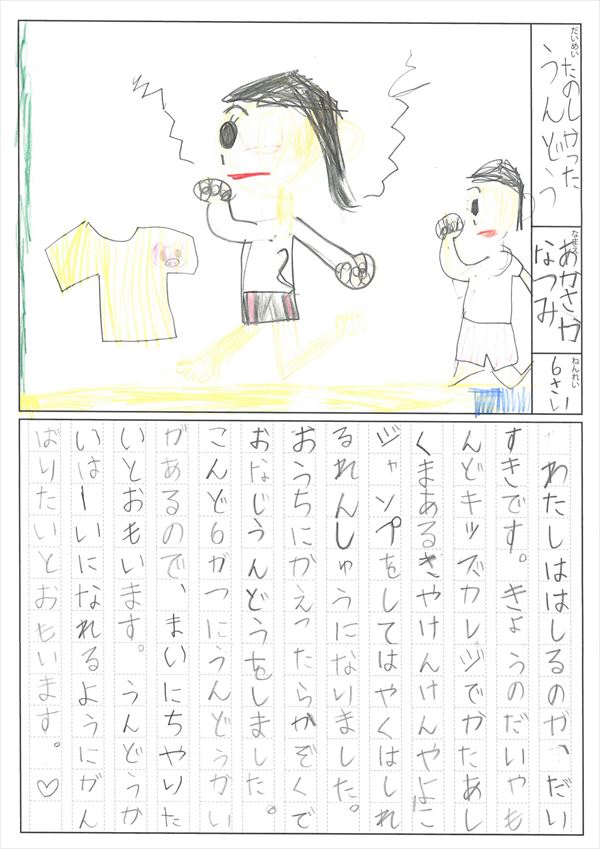 だいめい
たのしかった
うんどう
なまえ
あかさか
なつみ
ねんれい
6さい
2
わたしははしるのが、だい
すきです。きょうのだいやも
んどキッズカレッジでかたあし
くまあるきやけんけんやよこ
ジャンプをしてはやくはしれ
るれんしゅうになりました。
おうちにかえったらかぞくで
おなじうんどうをしました。
こんど6がつにうんどうかい
があるので、まいにちやりた
いとおもいます。うんどうか
いは1いになれるようにがん
ばりたいとおもいます。♡